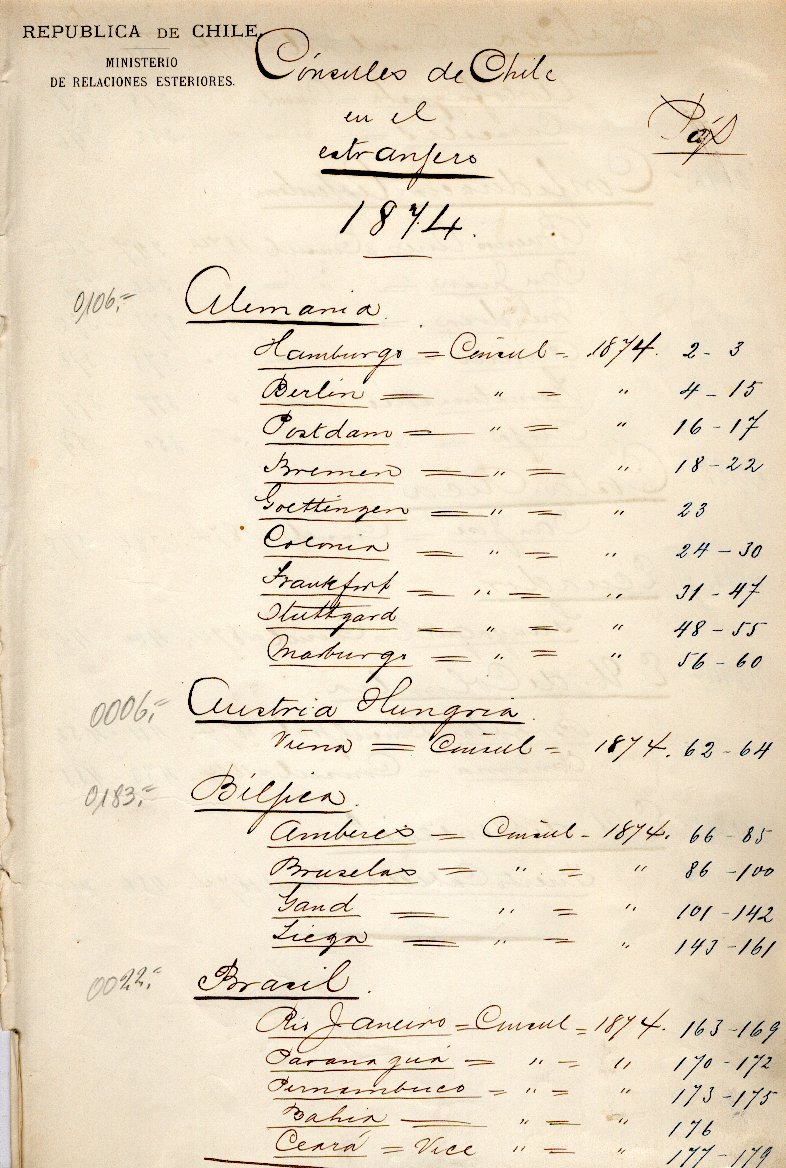 REPUBLICA DE CHILE.
MINISTERIO
DE RELACIONES ESTERIORES.
Cónsules de Chile
en el
estranjero
Páj
1874.
0106,= Alemania.
Hamburgo = Cónsul = 1874. 2 - 3
Berlin = " = " 4 - 15
Postdam = " = " 16 - 17
Bremen = " = " 18 - 22
Goettingen = " = " 23
Colonia = " = " 24 - 30
Frankfort = " = " 31 - 47
Stuttgard = " = " 48 - 55
Marburgo = " = " 56 - 60
0006,= Austria Hungria.
Viena = Cónsul = 1874. 62 - 64
0183,= Béljica.
Amberes = Cónsul - 1874. 66 - 85
Bruselas = " = " 86 - 100
Gand = " = " 101 - 142
Liega = " = " 143 - 161
0022,= Brasil.
Rio Janeiro = Cónsul = 1874. 163 - 169
Paranaguá = " = " 170 - 172
Pernambuco = " = " 173 - 175
Bahia = " = " 176
Ceará = Vice " = " 177 - 179